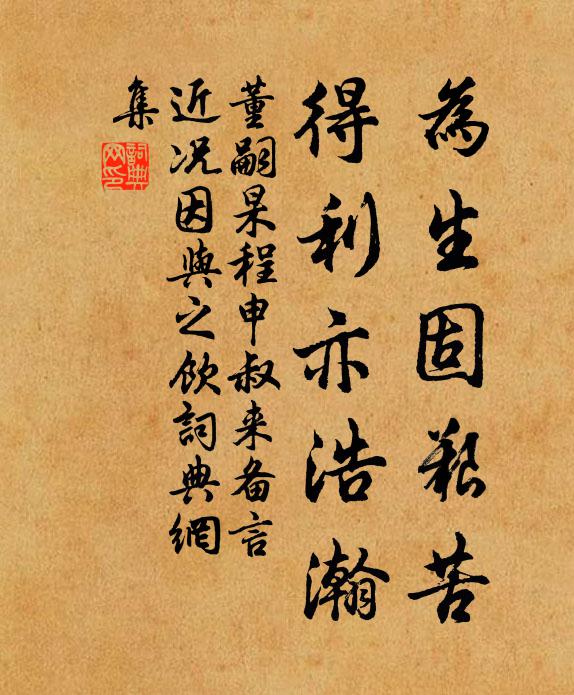 為生固艱苦
得利亦浩瀚
董嗣杲程申叔来备言
近况因與之飲詞典網
集
詞典
网印